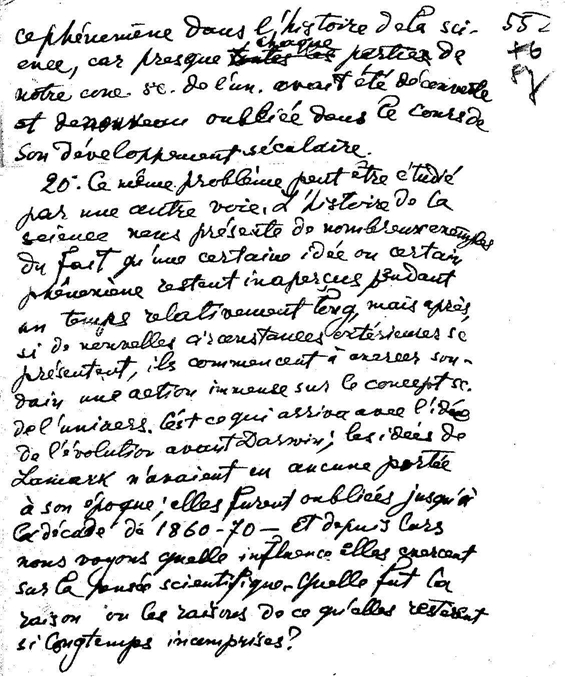 ce phénomène dans l'histoire de la sci- 55
ence, car presque chaque toutes les parties de
notre conc. sc. de l'un. avait été découverte
et de nouveau oubliée dans le cours de
son développement séculaire.
20. Ce même problème peut être étudié
par une autre voie. L'histoire de la
science nous présente de nombreux exemples
du fait qu'une certaine idée ou certain
phénomène restent inaperçus pendant
un temps relativement long, mais après,
si de nouvelles circonstances extérieures se
présentent, ils commencent à exercer sou-
dain une action immense sur le concept sc.
de l'univers. C'est ce qui arriva avec l'idée
de l'évolution avant Darwin; les idées de
Lamark n'avaient eu aucune portée
à son époque; elles furent oubliées jusqu'à
la décade de 1860-70 — Et depuis lors
nous voyons quelle influence elles exercent
sur la pensée scientifique. Quelle fut la
raison ou les raisons de ce qu'elles restèrent
si longtemps incomprises?